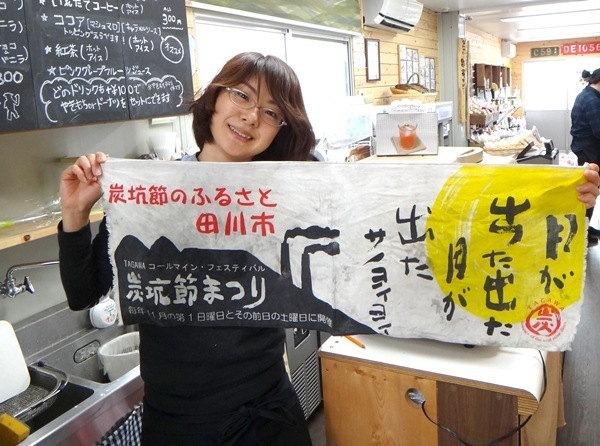 いれたてコーヒー
300円
ココア(マシュマロ or キャラメルソース
トッピングスラです)(ホット アイス)
紅茶(ホット アイス)
ピンクグレープフルーツジュース
どのドリンクも+¥100で
やきもちorドーナツをセットにできます
300
CS91
DE1056
炭坑節のふるさと
田川市
TAGAWA コールマイン・フェスティバル
炭坑節まつり
毎年11月の第1日曜日とその前日の土曜日に開催
月が
出た出た
月が
出た
サノヨイヨイ
TAGAWA
炭